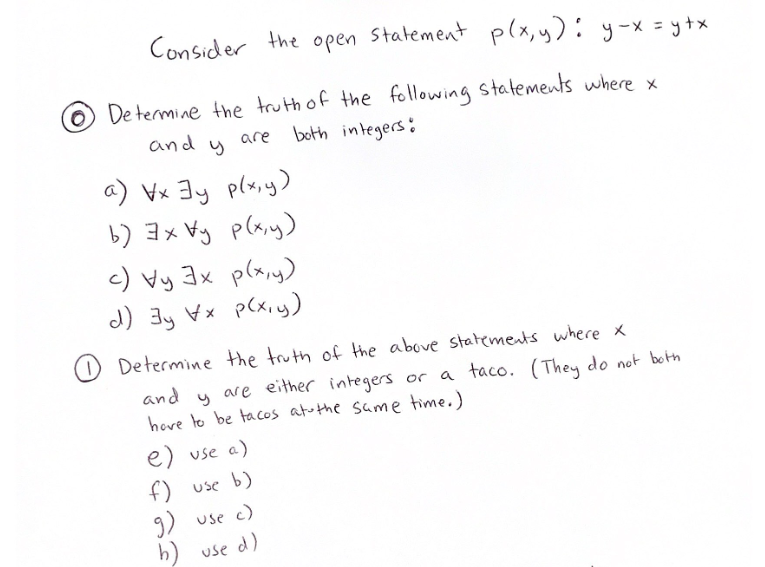 Consider the open statement p(x,y): y-x = y+x
⓪ Determine the truth of the following statements where x
and y are both integers:
a) ∀x ∃y p(x,y)
b) ∃x ∀y p(x,y)
c) ∀y ∃x p(x,y)
d) ∃y ∀x p(x,y)
① Determine the truth of the above statements where x
and y are either integers or a taco. (They do not both
have to be tacos at the same time.)
e) use a)
f) use b)
g) use c)
h) use d)